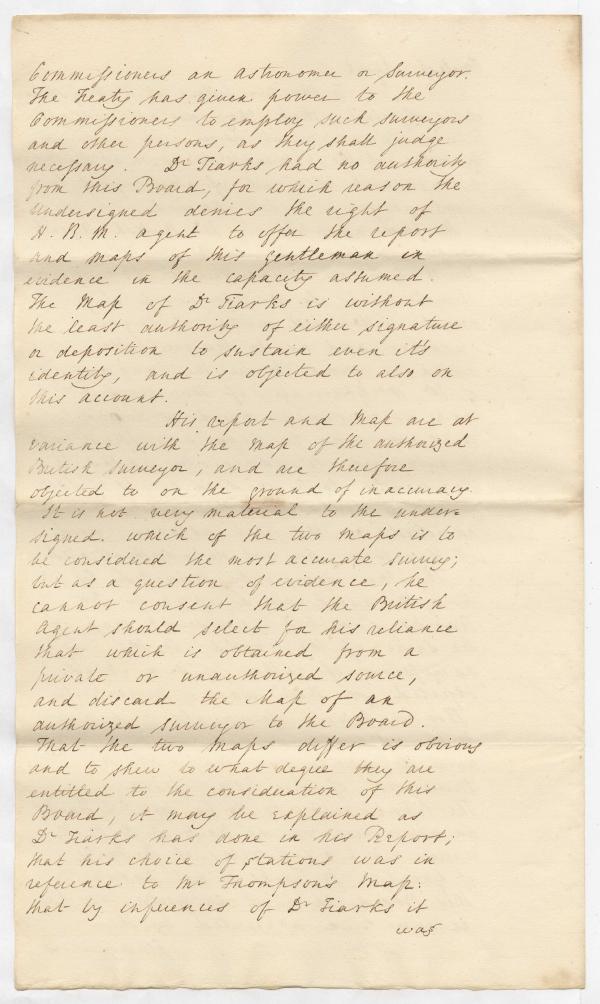 Commissioners an astronomer or Surveyor.
The Treaty has given power to the
Commissioners to employ such surveyors
and other persons, as they shall judge
necessary. Dr Tiarks had no authority
from this Board, for which reason the
undersigned denies the right of
H. B. M. agent to offer the report
and maps of this gentleman in
evidence in the capacity assumed.
The Map of Dr Tiarks is without
the least authority of either signature
or deposition to sustain even it's
identity, and is objected to also on
this account.
His report and Map are at
variance with the Map of the authorized
British Surveyor, and are therefore
objected to on the ground of inaccuracy.
It is not very material to the under=
signed. which of the two maps is to
be considered the most accurate survey;
but as a question of evidence, he
cannot consent that the British
Agent should select for his reliance
that which is obtained from a
private or unauthorized source,
and discard the Map of an
authorized surveyor to the Board.
That the two Maps differ is obvious
and to shew to what degree they are
entitled to the consideration of this
Board, it may be explained as
Dr Tiarks has done in his Report;
that his choice of stations was in
reference to Mr Thompson's Map:
that by inferences of Dr Tiarks it
was